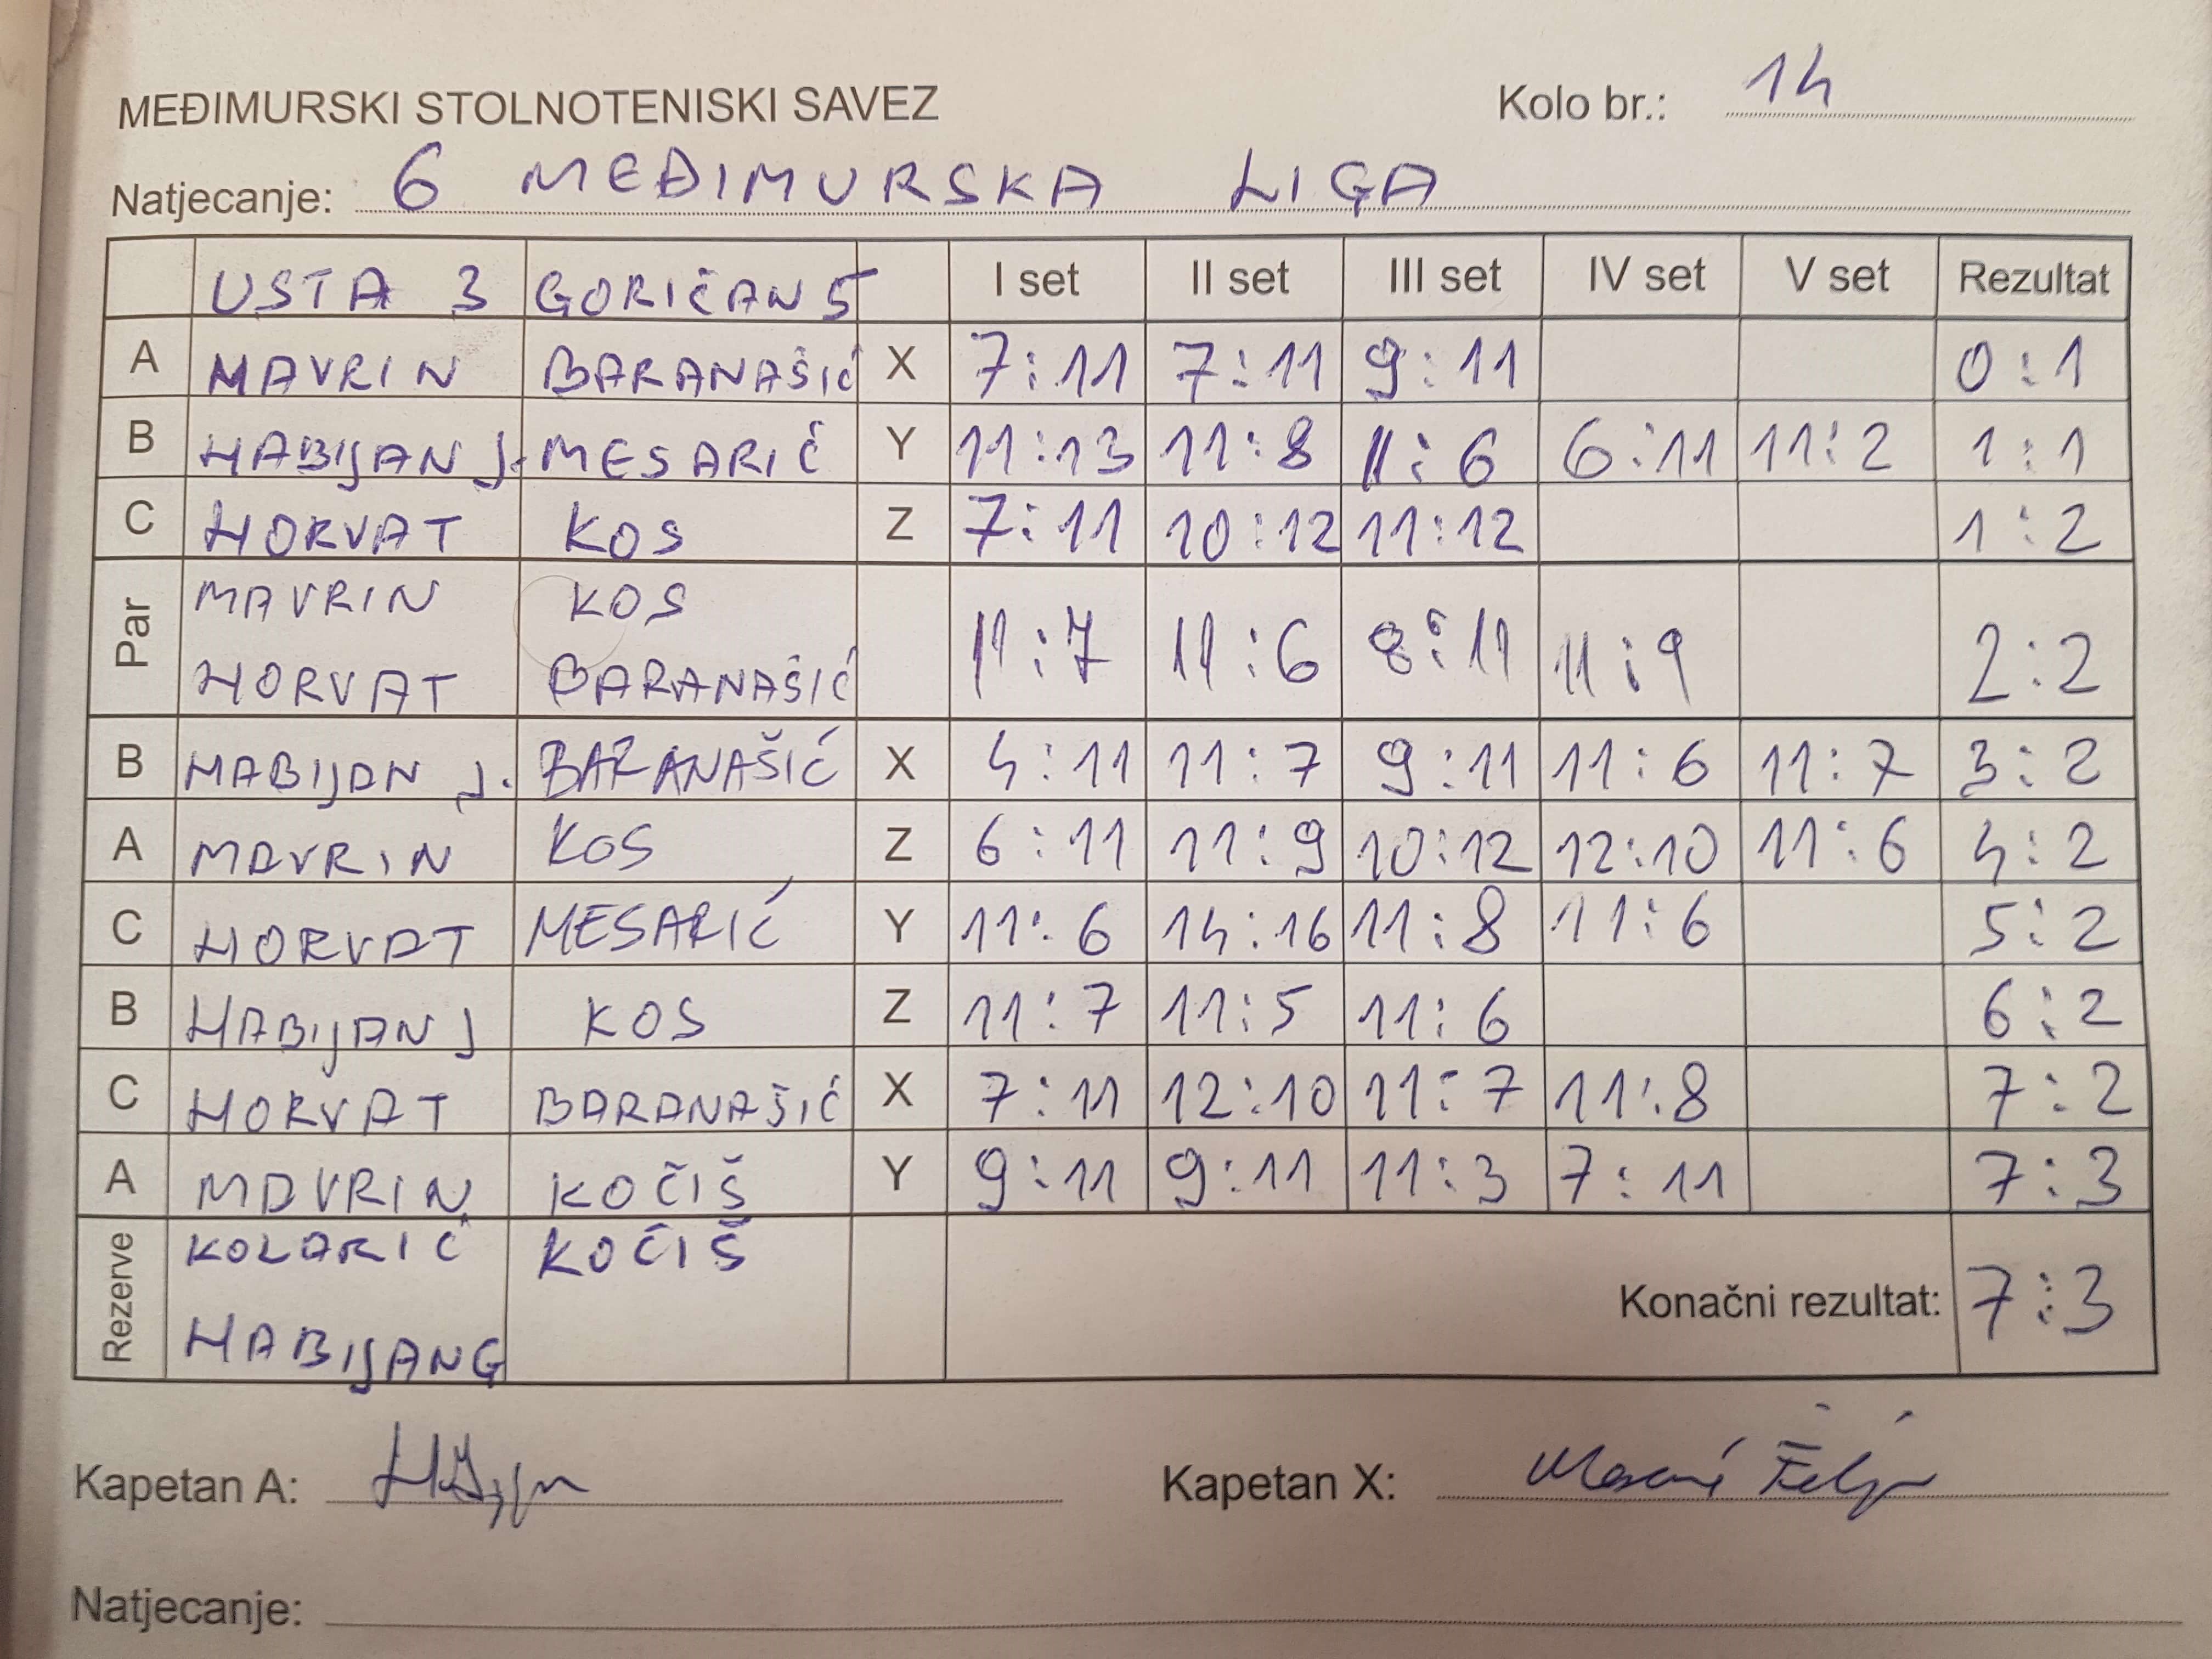 MEĐIMURSKI STOLNOTENISKI SAVEZ Kolo br.: 14
Natjecanje: 6 MEĐIMURSKA LIGA
USTA 3 GORIČAN 5 I set II set III set IV set V set Rezultat
A MAVRIN BARANAŠIĆ X 7:11 7:11 9:11 0:1
B HABIJAN J. MESARIĆ Y 11:13 11:8 11:6 6:11 11:2 1:1
C HORVAT KOS Z 7:11 10:12 11:12 1:2
Par MAVRIN KOS
HORVAT BARANAŠIĆ 11:7 11:6 8:11 11:9 2:2
B HABIJAN J. BARANAŠIĆ X 4:11 11:7 9:11 11:6 11:7 3:2
A MAVRIN KOS Z 6:11 11:9 10:12 12:10 11:6 4:2
C HORVAT MESARIĆ Y 11:6 14:16 11:8 11:6 5:2
B HABIJAN J KOS Z 11:7 11:5 11:6 6:2
C HORVAT BARANAŠIĆ X 7:11 12:10 11:7 11:8 7:2
A MAVRIN KOČIŠ Y 9:11 9:11 11:3 7:11 7:3
Rezerve KOLARIĆ KOČIŠ
HABIJAN G Konačni rezultat: 7:3
Kapetan A: Kapetan X:
Natjecanje: